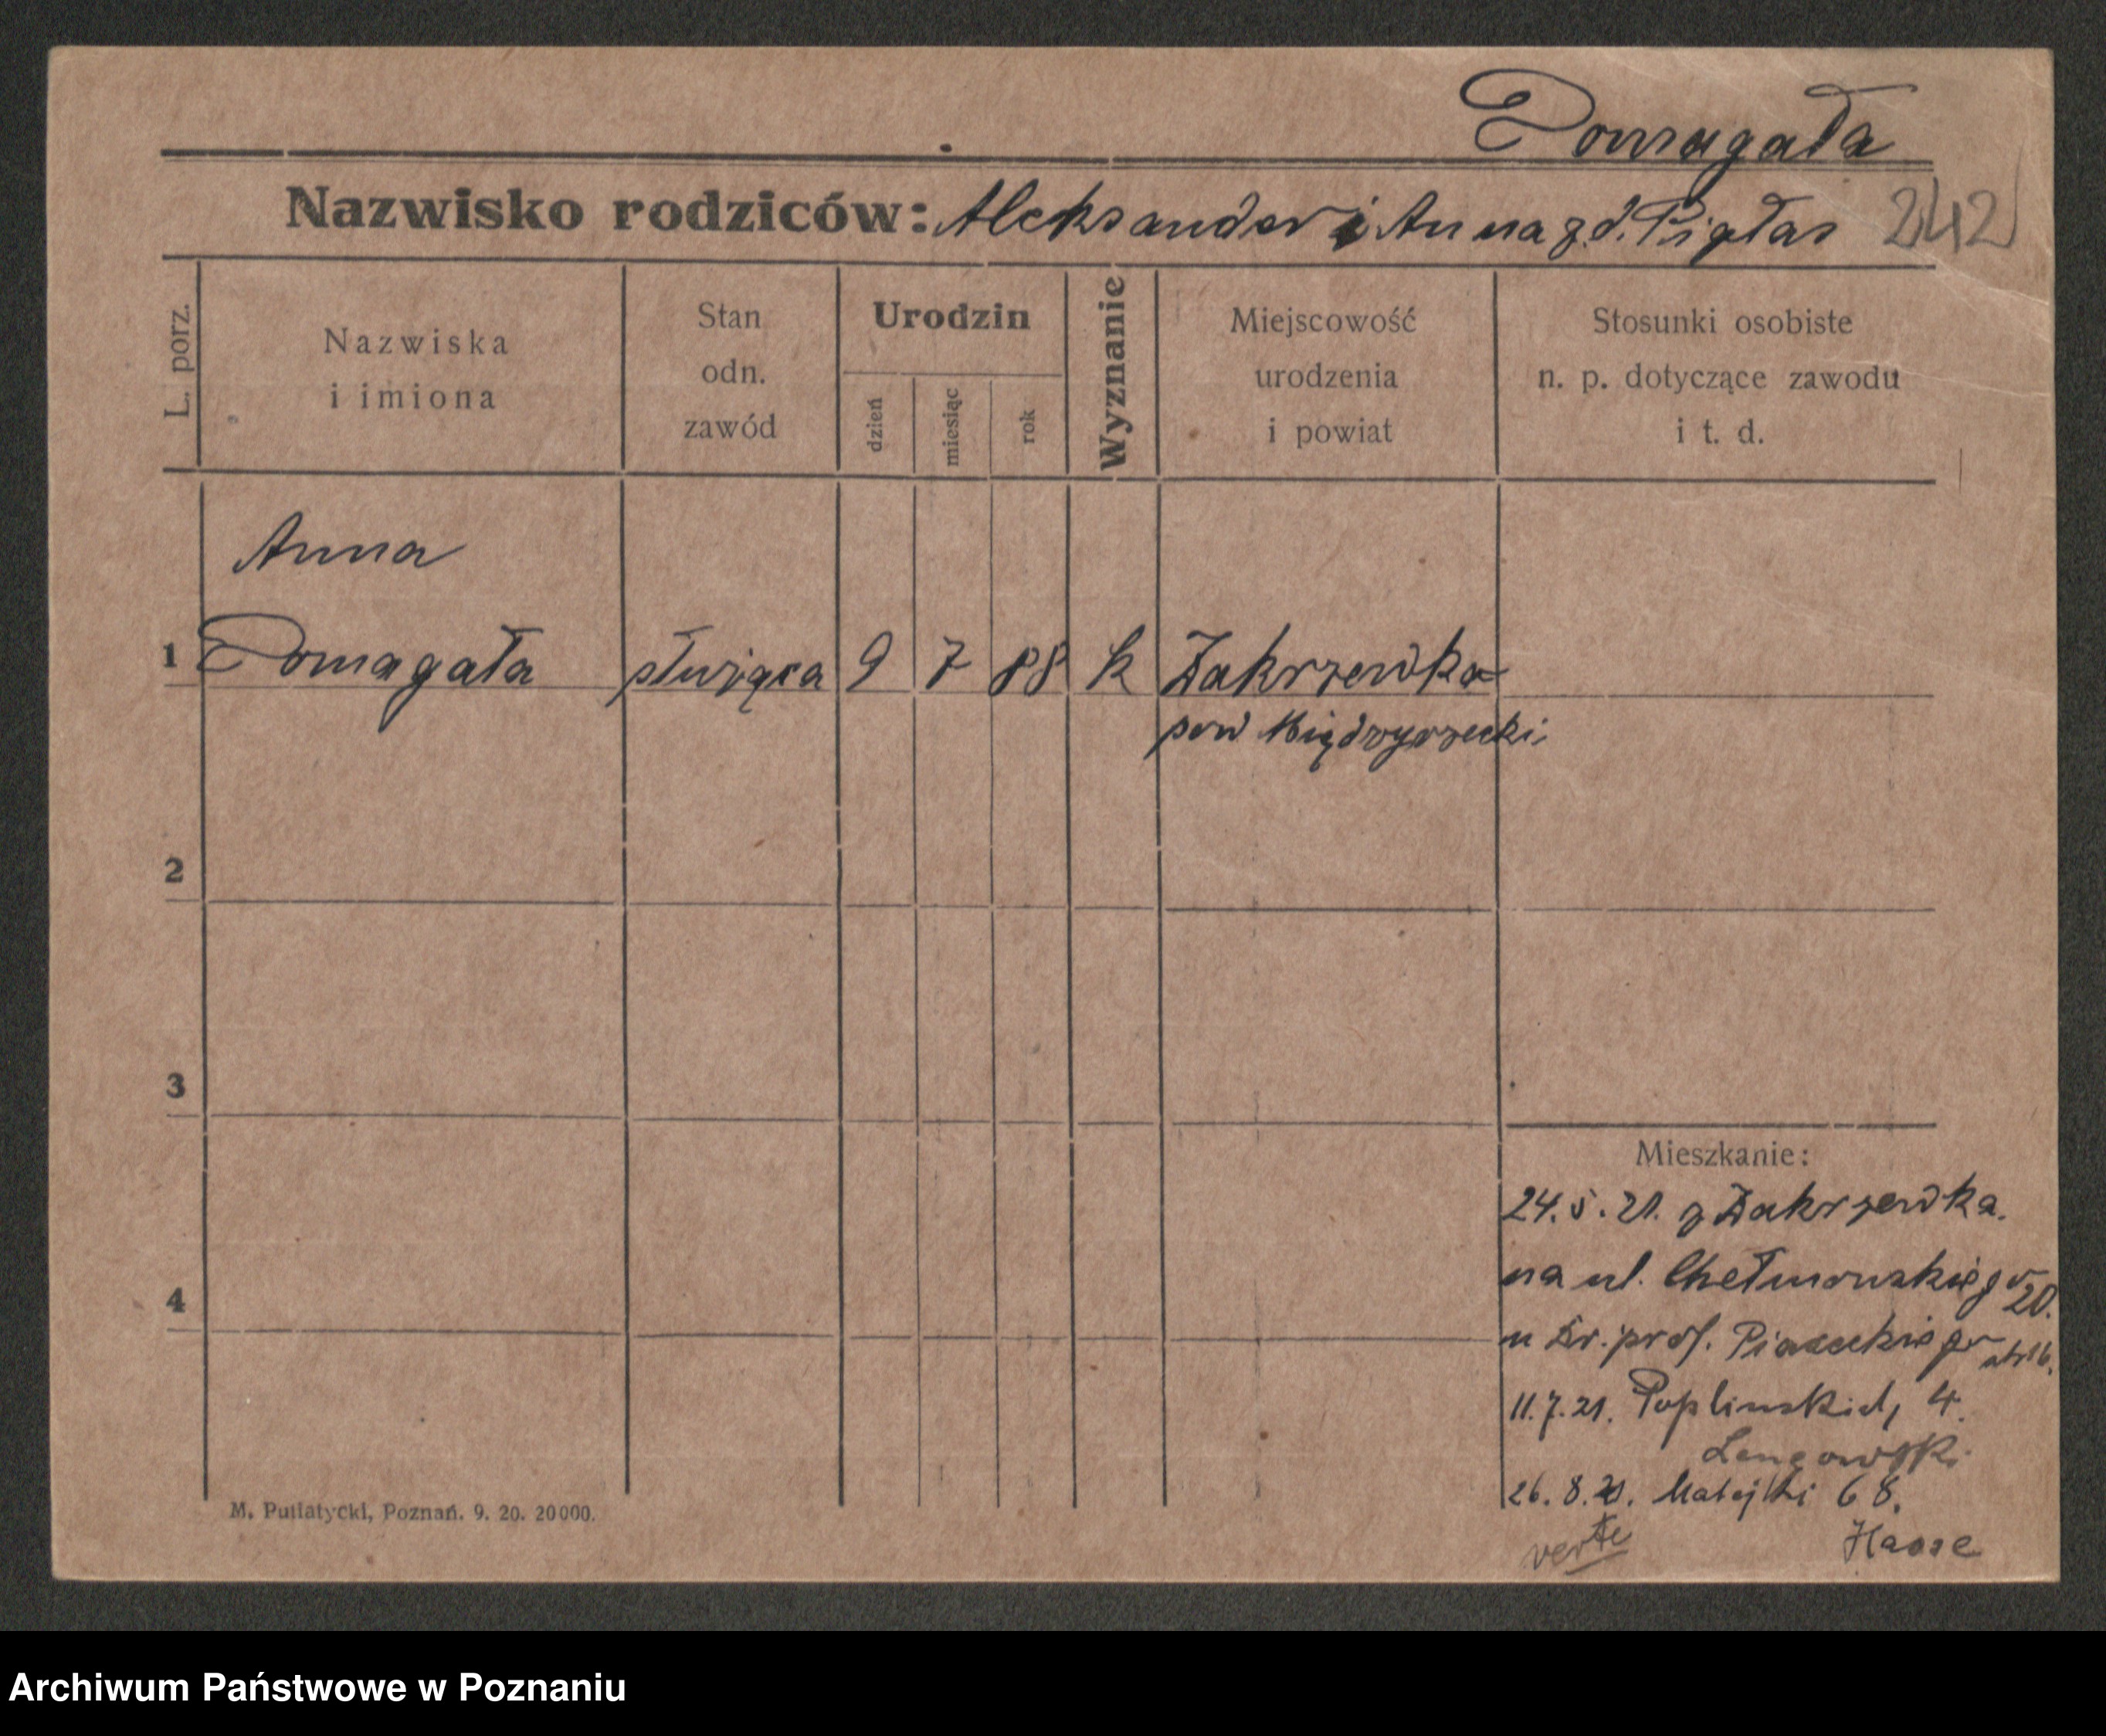 Domagała
Nazwisko rodziców: Aleksander i Anna z d. Piątas 242
L. porz.
Nazwiska
i imiona
Stan
odn.
zawód
Urodzin
dzień
miesiąc
rok
Wyznanie
Miejscowość
urodzenia
i powiat
Stosunki osobiste
n. p. dotyczące zawodu
i t. d.
Anna
1 Domagała służąca 9 7 88 k Zakrzewka
pow Międzyrzecki
2
3
Mieszkanie:
24.5.21. z Zakrzewka.
na ul. Chełmońskiego 20.
4
u Dr. prof. Piaseckiego
11.7.21. Poplinskich 4.
26.8.21. Matejki 68.
verte Haase
M. Putiatycki, Poznań. 9. 20. 20000.
Archiwum Państwowe w Poznaniu